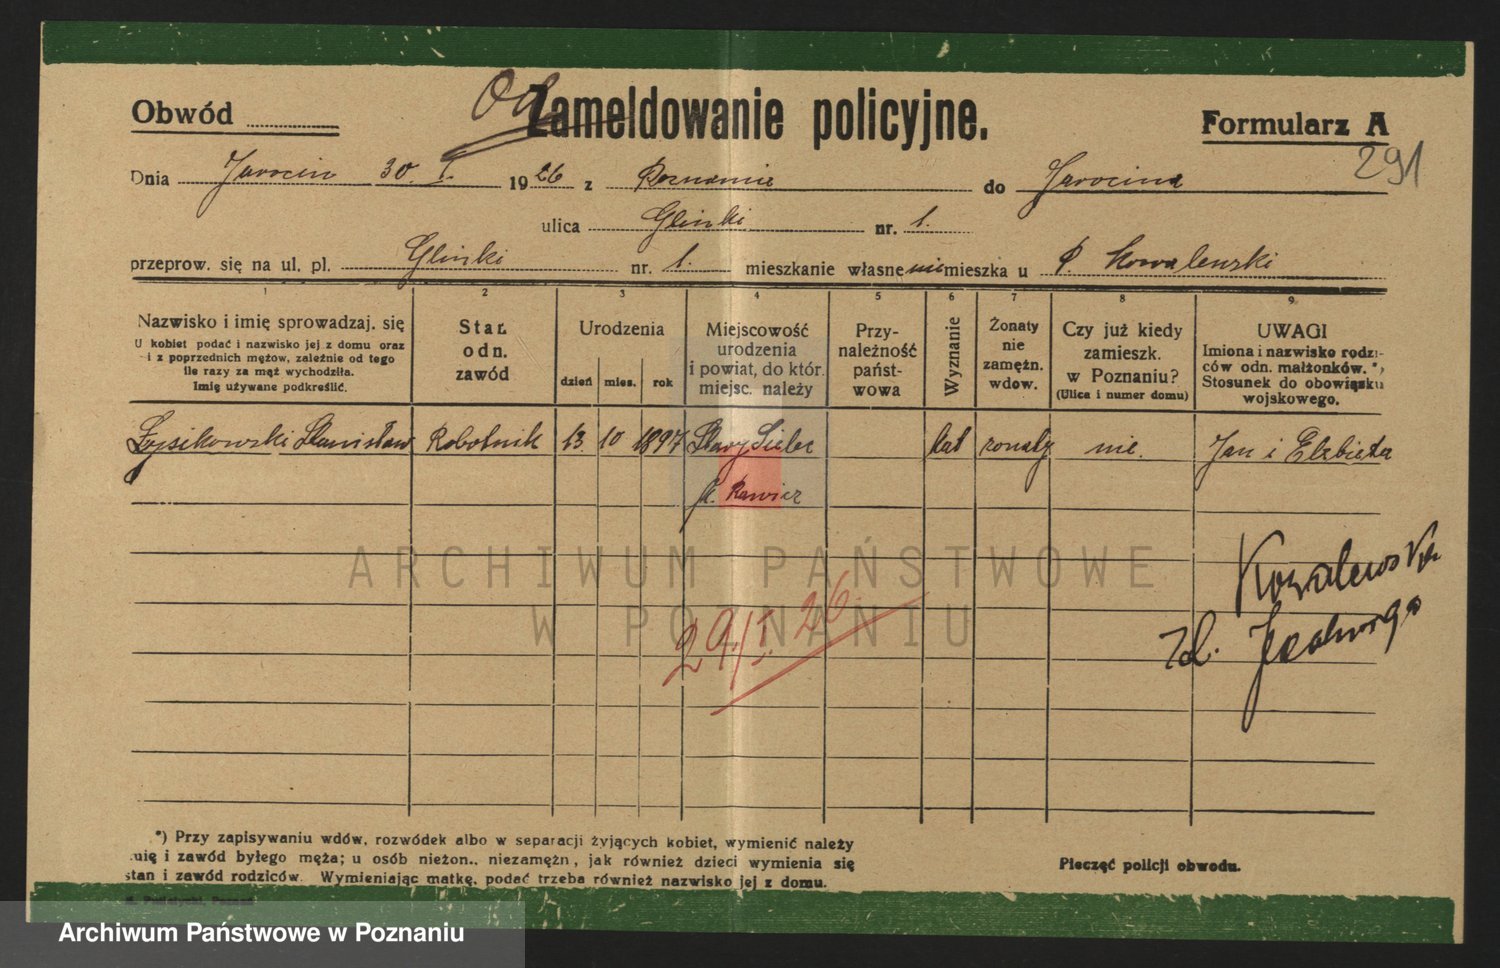 Obwód
Od
Zameldowanie policyjne.
Formularz A
291
Dnia Jarocin 30. I. 1926 z Poznania do Jarocina
ulica Glinki nr. 1.
przeprow. się na ul. pl. Glinki nr. 1. mieszkanie własne nie mieszka u P. Kowalewski
1 2 3 4 5 6 7 8 9.
Nazwisko i imię sprowadzaj. się
U kobiet podać i nazwisko jej z domu oraz
i z poprzednich mężów, zależnie od tego
ile razy za mąż wychodziła.
Imię używane podkreślić.
Stan.
odn.
zawód
Urodzenia
dzień mies. rok
Miejscowość
urodzenia
i powiat, do któr.
miejsc. należy
Przy-
należność
państ-
wowa
Wyznanie
Żonaty
nie
zamężn.
wdow.
Czy już kiedy
zamieszk.
w Poznaniu?
(Ulica i numer domu)
UWAGI
Imiona i nazwisko rodzi-
ców odn. małżonków. *)
Stosunek do obowiązku
wojskowego.
Szysikowski Stanisław Robotnik 13 10 1897 Stary Sielec kat żonaty nie. Jan i Elzbieta
p. Rawicz
ARCHIWUM PAŃSTWOWE
W POZNANIU
29/I. 26.
Kowalewski
*) Przy zapisywaniu wdów, rozwódek albo w separacji żyjących kobiet, wymienić należy
imię i zawód byłego męża; u osób nieżon., niezamężn, jak również dzieci wymienia się
stan i zawód rodziców. Wymieniając matkę, podać trzeba również nazwisko jej z domu.
Pieczęć policji obwodu.
Archiwum Państwowe w Poznaniu